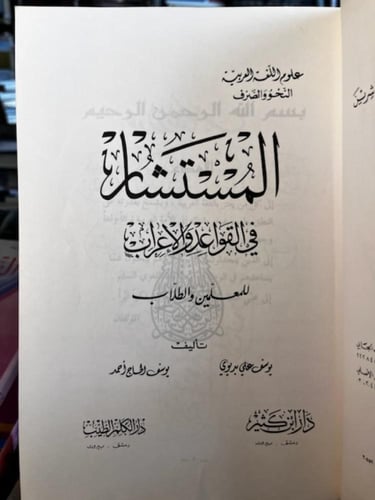 علوم اللغة العربية
النحو والصرف
بسم الله الرحمن الرحيم
المُسْتَشَار
في القواعد والإعراب
للمعلمين والطلاب
تأليف
يوسف علي بديوي يوسف الحاج أحمد
دار ابن كثير دار الكلم الطيب
دمشق - بيروت دمشق - بيروت